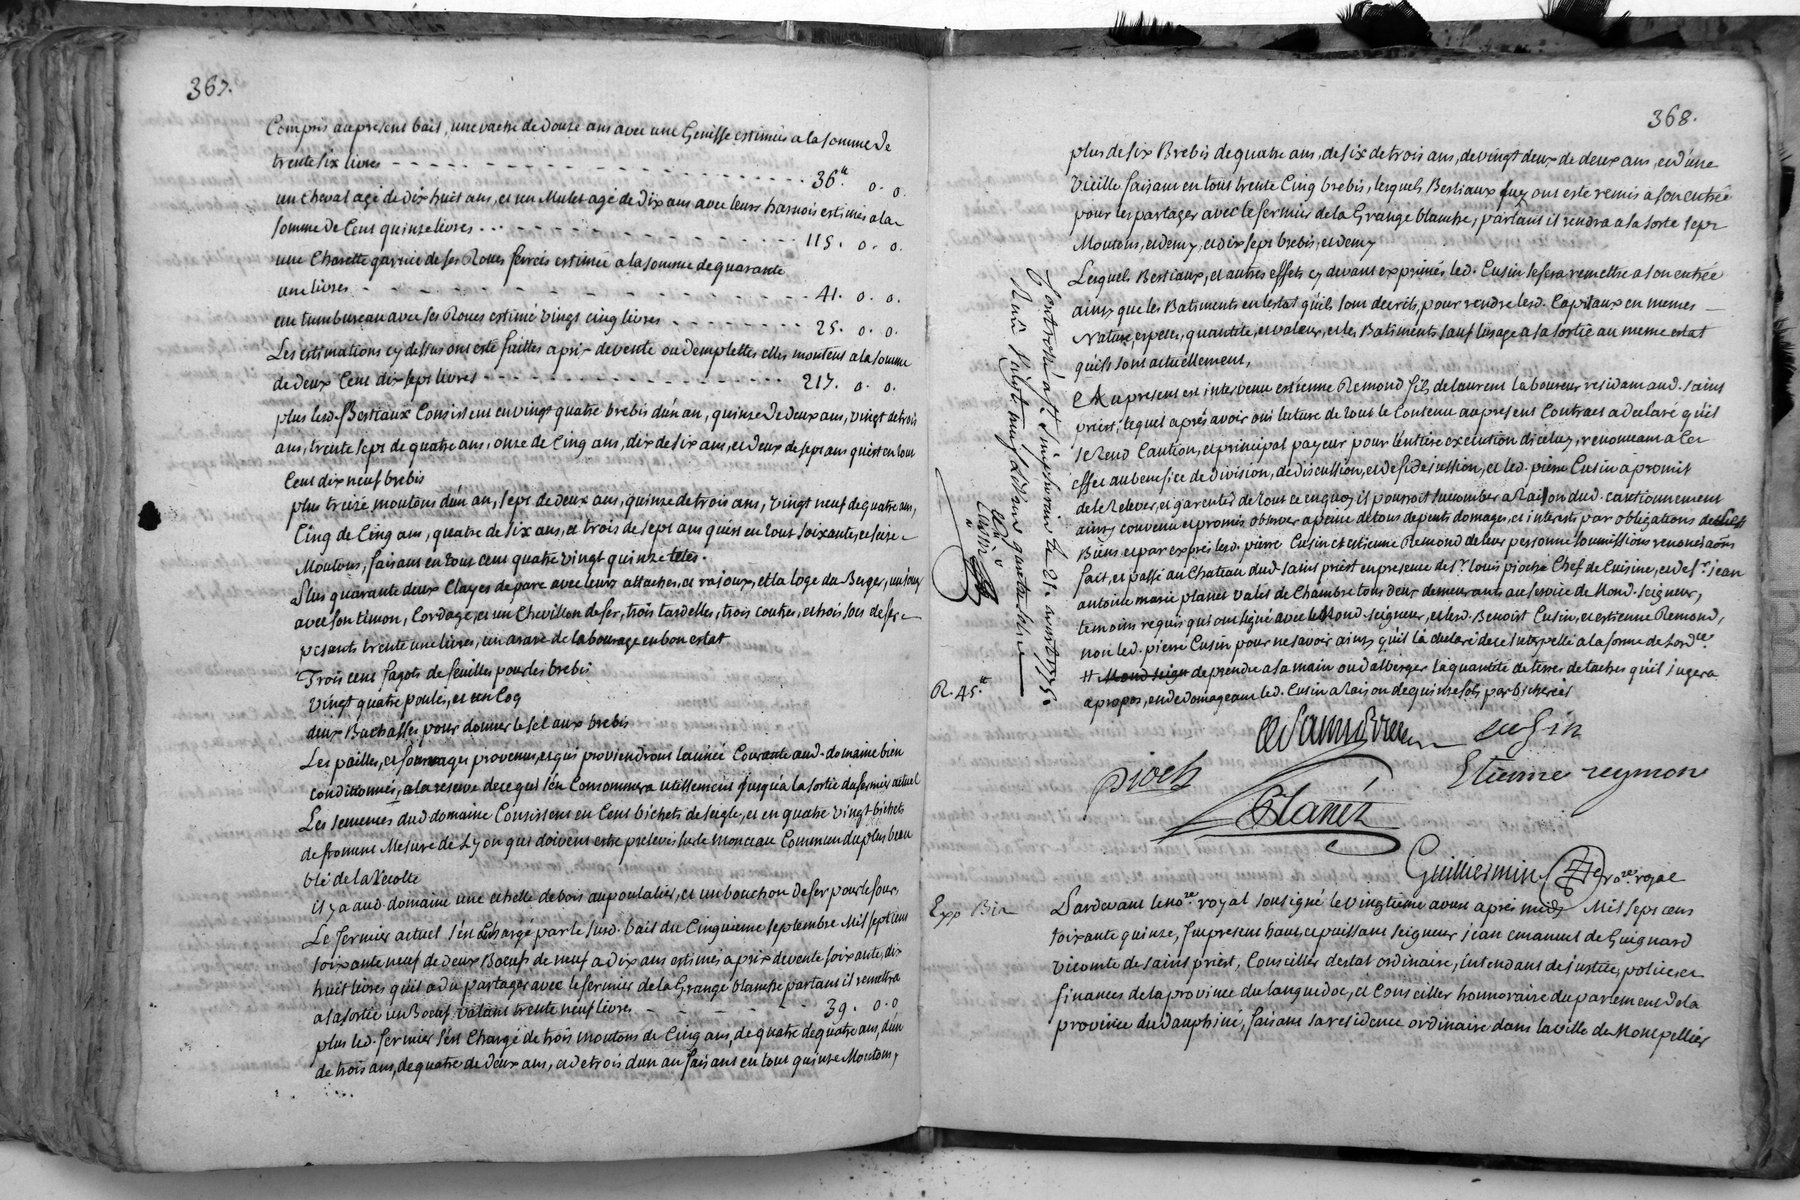 367.
Compris au present bail, une vache de douze ans avec une Genisse estimées a la somme de
trente six livres - - - - - - - - - - - - - - - - 36.tt 0. 0.
un Cheval agé de dix huit ans, et un Mulet agé de dix ans avec leurs harnois estimés a la
somme de Cent quinze livres - - - - - - - - - - - 115. 0. 0.
une Charette garnie de ses Roues ferrées estimée a la somme de quarante
une livres - - - - - - - - - - - - - - - - 41. 0. 0.
un tumbureau avec ses Roues estimé vingt cinq livres - - - - - - - 25. 0. 0.
Les estimations cy dessus ont esté faittes a prix de vente ou d'emplettes elles montent a la somme
de deux Cent dix sept livres - - - - - - - - - - - 217. 0. 0.
plus lesd. Bestiaux Consistent en vingt quatre brebis d'un an, quinze de deux ans, vingt de trois
ans, trente sept de quatre ans, onze de Cinq ans, dix de six ans, et deux de sept ans qui est en tout
Cent dix neuf brebis
plus treize moutons d'un an, sept de deux ans, quinze de trois ans, vingt neuf de quatre ans,
Cinq de Cinq ans, quatre de six ans, et trois de sept ans qui est en tout soixante, et seize
Moutons, faisant en tout cent quatre vingt quinze tetes.
Plus quarante deux Clayes de parc avec leurs attaches, et rajoux, et la loge du Berger, un joug
avec son timon, Cordage, et un Chevillon de fer, trois tardelles, trois coutres, et trois socs de fer
pesants trente une livres, un araire de labourage en bon estat
Trois cent fagots de feuilles pour les brebis
vingt quatre poules, et un Coq
deux Bachasses pour donner le sel aux brebis
Les pailles, et fourrages provenus, et qui proviendront l'année Courante aud. domaine bien
conditionnés, a la reserve de ce qui s'en Consommera utillement jusqu'à la sortie du fermier actuel
Les semences dud domaine Consistent en Cent bichets de seigle, et en quatre vingt bichets
de froment Mesure de Lyon qui doivent estre prelevés sur le monceau Commun du plus beau
blé de la Recolte
il y a aud. domaine une echelle de bois au poulalier, et un bouchon de fer pour le four.
Le fermier actuel s'est Chargé par le susd. bail du Cinquieme septembre Mil sept cent
soixante neuf de deux Boeufs de neuf a dix ans estimés a prix de vente soixante dix
huit livres qu'il a du partager avec le fermier de la Grange blanche partant il remettra
a la sortie un Boeuf valant trente neuf livres - - - - - - - 39. 0. 0
plus led. fermier s'est Chargé de trois moutons de Cinq ans, de quatre de quatre ans, d'un
de trois ans, de quatre de deux ans, et de trois d'un an faisant en tout quinze Moutons,
368.
plus de six Brebis de quatre ans, de six de trois ans, de vingt deux de deux ans, et d'une
vieille faisant en tout trente Cinq brebis, lesquels Bestiaux luy ont esté remis a son entrée
pour les partager avec le fermier de la Grange blanche, partant il rendra a la sortie sept
Moutons, et demy, et dix sept brebis, et demy
Lesquels Bestiaux, et autres effets cy devant exprimés led. Cusin se fera remettre a son entrée
ainsy que les Batiments en l'estat qu'ils sont decrits, pour rendre lesd. Capitaux en memes
Nature, espece, quantité, et valeur, et les Batiments sauf l'usage a sa sortie au meme estat
qu'ils sont actuellement,
Et a present est intervenu estienne Remond fils de laurent laboureur residant aud. saint
priest, lequel après avoir oui lecture de tout le Contenu au present Contract a declaré qu'il
se Rend Caution, et principal payeur pour l'entiere execution d'iceluy, renonceant a Cet
effet au benefice de division, de discussion, et de fidejussion, et led. pierre Cusin a promis
de le Relever, et garentir de tout ce en quoy il pourroit succomber a Raison dud. cautionnement
ainsy convenu et promis observer a peine de tous depents domages, et interests par obligations de
Biens et par exprès lesd. pierre Cusin et estienne Remond de leur personne soumissions renonciaõns
fait, et passé au Chateau dud. saint priest en presence de sr. louis pioche Chef de Cuisine, et de sr. jean
antoine marie planet valet de Chambre tous deux demeurants au service de Mond. seigneur,
temoins requis qui ont signé avec Mond. seigneur, et led. Benoist Cusin, et estienne Remond,
non led. pierre Cusin pour ne savoir ainsy qu'il l'a declaré de ce interpellé a la forme de l'ordce
# Mond. seign de prendre a sa main ou d'alberger la quantité de terres de taches qu'il jugera
a propos, en dedomageant led. Cusin a Raison de quinze sols par bicherées
Controllé a St. Simphorien le 21. aoust 1775.
Reçu Vingt neuf
Cusin
R. 45.tt
de Saint Priest cusin
pioch Etienne reymon
Planet
Guilliermin nore. royal
Exp Bin
Pardevant le nore. royal soussigné le vingtieme aoust après midy Mil sept cent
soixante quinze, fut present haut, et puissant seigneur jean emanuel de Guignard
vicomte de saint priest, Conseiller d'estat ordinaire, intendant de justice, police, et
finances de la province du languedoc, et Conseiller honnoraire du parlement de la
province du dauphiné, faisant sa residence ordinaire dans la ville de Montpellier